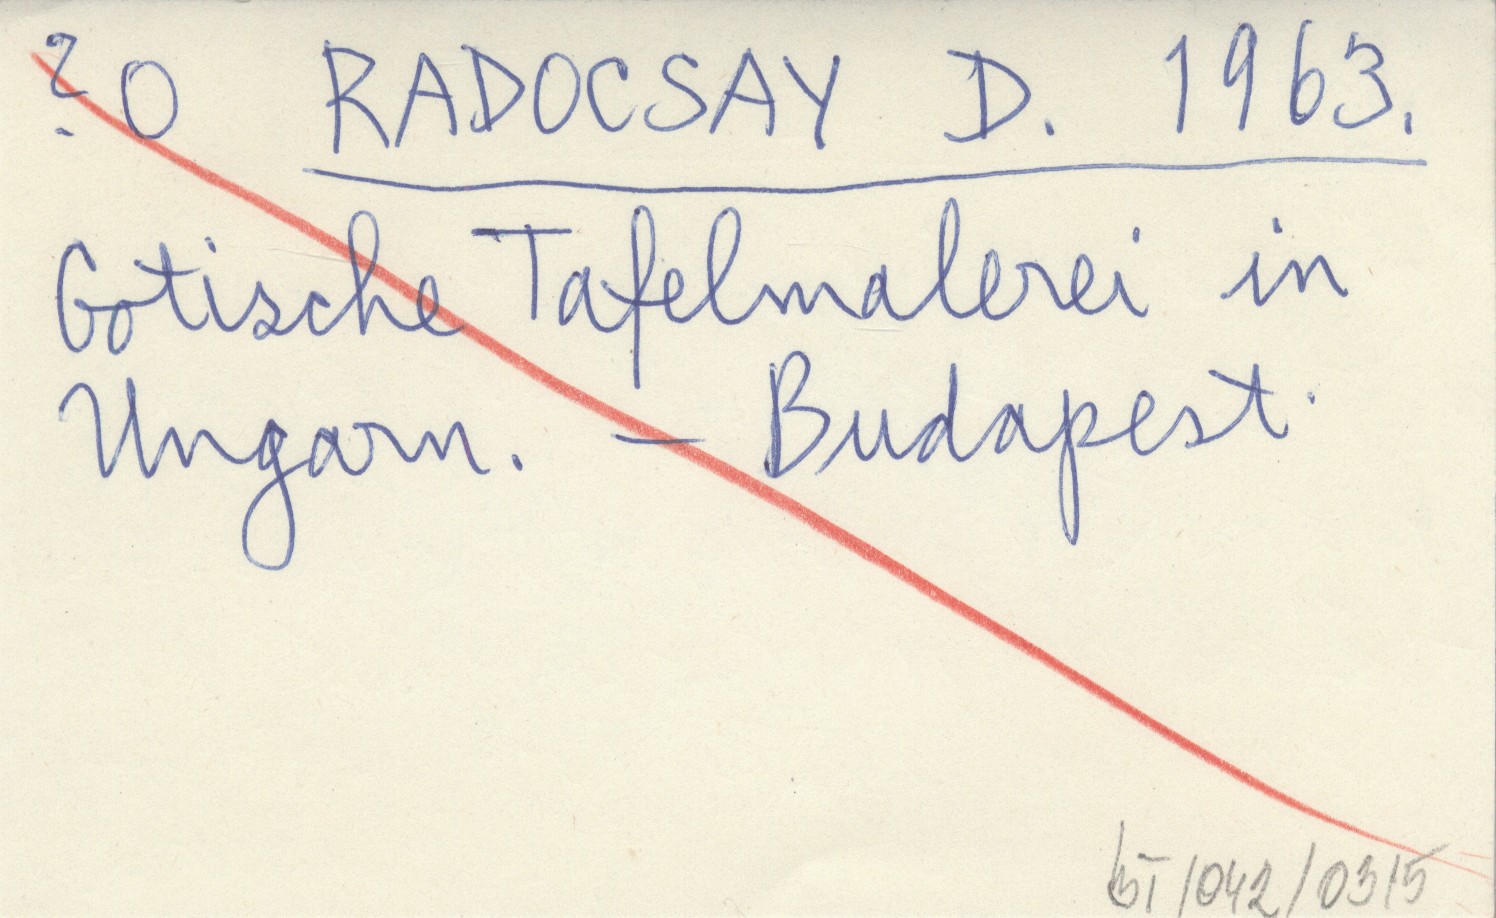 ? O RADOCSAY D. 1963.
Gotische Tafelmalerei in
Ungarn. – Budapest.
BT/042/0315